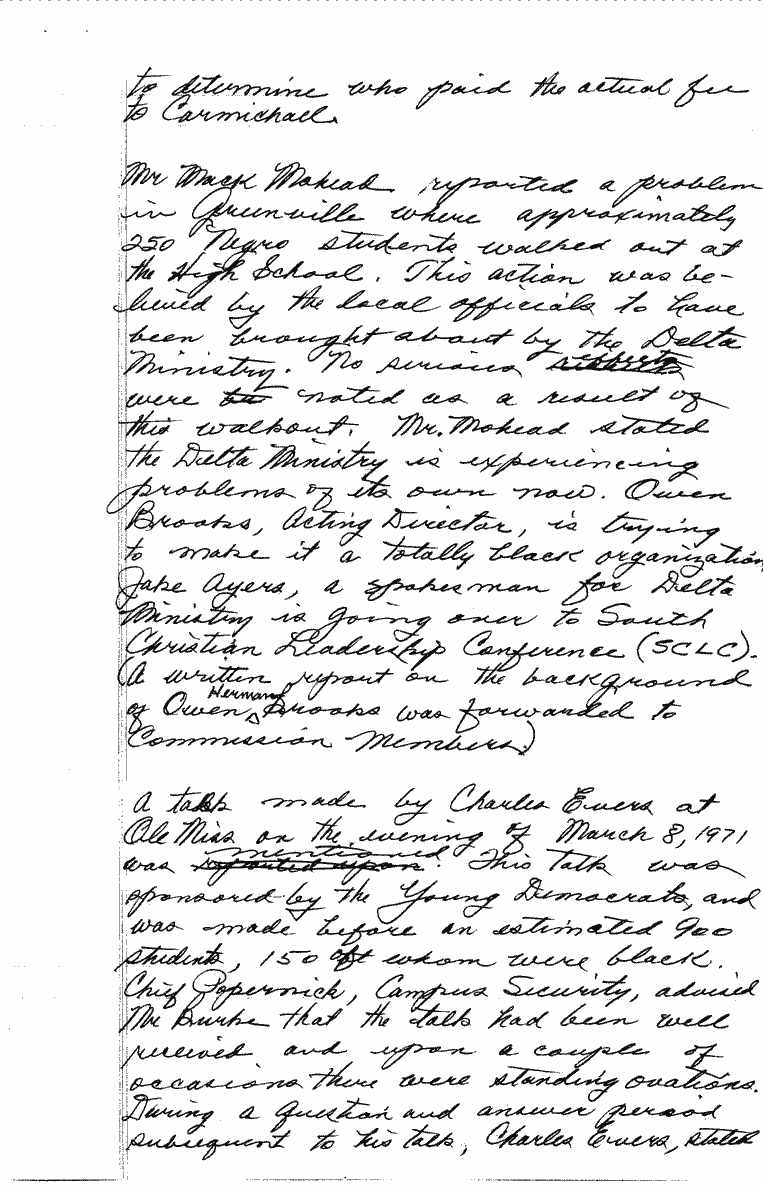 to determine who paid the actual fee
to Carmichael.
Mr Mack Mohead reported a problem
in Greenville where approximately
250 Negro students walked out at
the High School. This action was be-
lieved by the local officials to have
been brought about by the Delta
Ministry. No serious
were noted as a result of
this walkout. Mr. Mohead stated
the Delta Ministry is experiencing
problems of its own now. Owen
Brooks, Acting Director, is trying
to make it a totally black organization
Jake Ayers, a spokesman for Delta
Ministry is going over to South
Christian Leadership Conference (SCLC).
(A written report on the background
of Owen Herman Brooks was forwarded to
Commission Members.)
A talk made by Charles Evers at
Ole Miss on the evening of March 8, 1971
was mentioned. This talk was
sponsored by the Young Democrats, and
was made before an estimated 900
students, 150 of whom were black.
Chief Popernick, Campus Security, advised
Mr Burke that the talk had been well
received and upon a couple of
occasions there were standing ovations.
During a question and answer period
subsequent to his talk, Charles Evers, stated